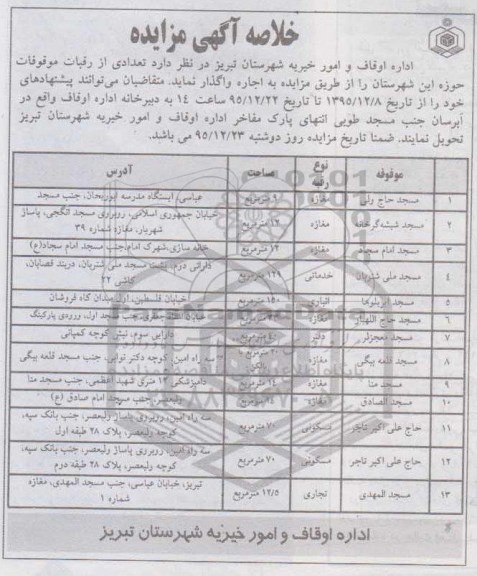 خلاصه آگهی مزایده
اداره اوقاف و امور خیریه شهرستان تبریز در نظر دارد تعدادی از رقبات موقوفات
حوزه این شهرستان را از طریق مزایده به اجاره واگذار نماید. متقاضیان می‌توانند پیشنهادهای
خود را از تاریخ ۱۳۹۵/۱۲/۸ تا تاریخ ۹۵/۱۲/۲۲ ساعت ۱۴ به دبیرخانه اداره اوقاف واقع در
آبرسان جنب مسجد طوبی انتهای پارک مفاخر اداره اوقاف و امور خیریه شهرستان تبریز
تحویل نمایند. ضمنا تاریخ مزایده روز دوشنبه ۹۵/۱۲/۲۳ می باشد.
موقوفه نوع رقبه مساحت آدرس
۱ مسجد حاج ولی مغازه ۹ مترمربع عباسی، ایستگاه مدرسه ابوریحان، جنب مسجد
۲ مسجد شیشه‌گرخانه مغازه ۱۲ مترمربع خیابان جمهوری اسلامی، روبروی مسجد انگجی، پاساژ
شهریار، مغازه شماره ۳۹
۳ مسجد امام سجاد مغازه مترمربع شهرک امام، جنب مسجد امام سجاد(ع)
۴ مسجد ملی شتربان خدماتی ۱۲۹ مترمربع دربند قصابان،
کاشی ۲۲
۵ مسجد انباری ۱۵۰ مترمربع خیابان فلسطین، اول میدان کاه فروشان
۶ مسجد حاج اللهیار مغازه مترمربع جنب مسجد اول، ورودی پارکینگ
۷ مسجد معجزلر دفتر مترمربع دارایی سوم، نبش کوچه کمپانی
۸ مسجد قلعه بیگی مغازه ۲۰ مترمربع سه راه امین، کوچه دکتر نوایی، جنب مسجد قلعه بیگی
۹ مسجد منا مغازه ۲۴ مترمربع دامپزشکی ۱۲ متری شهید اعظمی، جنب مسجد منا
۱۰ مسجد الصادق مغازه ۱۴ مترمربع ولیعصر، جنب مسجد امام صادق (ع)
۱۱ حاج علی اکبر تاجر مسکونی ۷۰ مترمربع سه راه امین، روبروی پاساژ ولیعصر، جنب بانک سپه،
کوچه ولیعصر، پلاک ۲۸ طبقه اول
۱۲ حاج علی اکبر تاجر مسکونی ۷۰ مترمربع سه راه امین، روبروی پاساژ ولیعصر، جنب بانک سپه،
کوچه ولیعصر، پلاک ۲۸ طبقه دوم
۱۳ مسجد المهدی تجاری ۱۲/۵ مترمربع تبریز، خیابان عباسی، جنب مسجد المهدی، مغازه
شماره ۱
اداره اوقاف و امور خیریه شهرستان تبریز